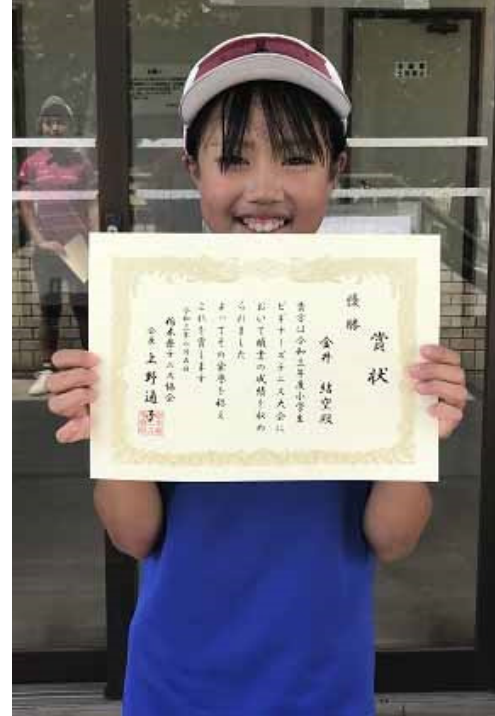 賞状
優勝
金井 結空殿
貴方は令和三年度小学生
ビギナーズテニス大会に
おいて頭書の成績を収め
られました
よってその栄誉を称え
これを賞します
栃木県テニス協会
会長 上野通子